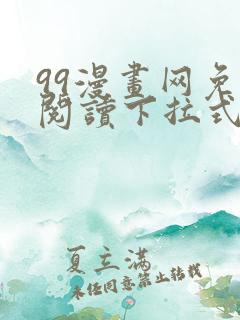 99漫畫网免
閱讀下拉式
夏立满
未经同意禁止转载